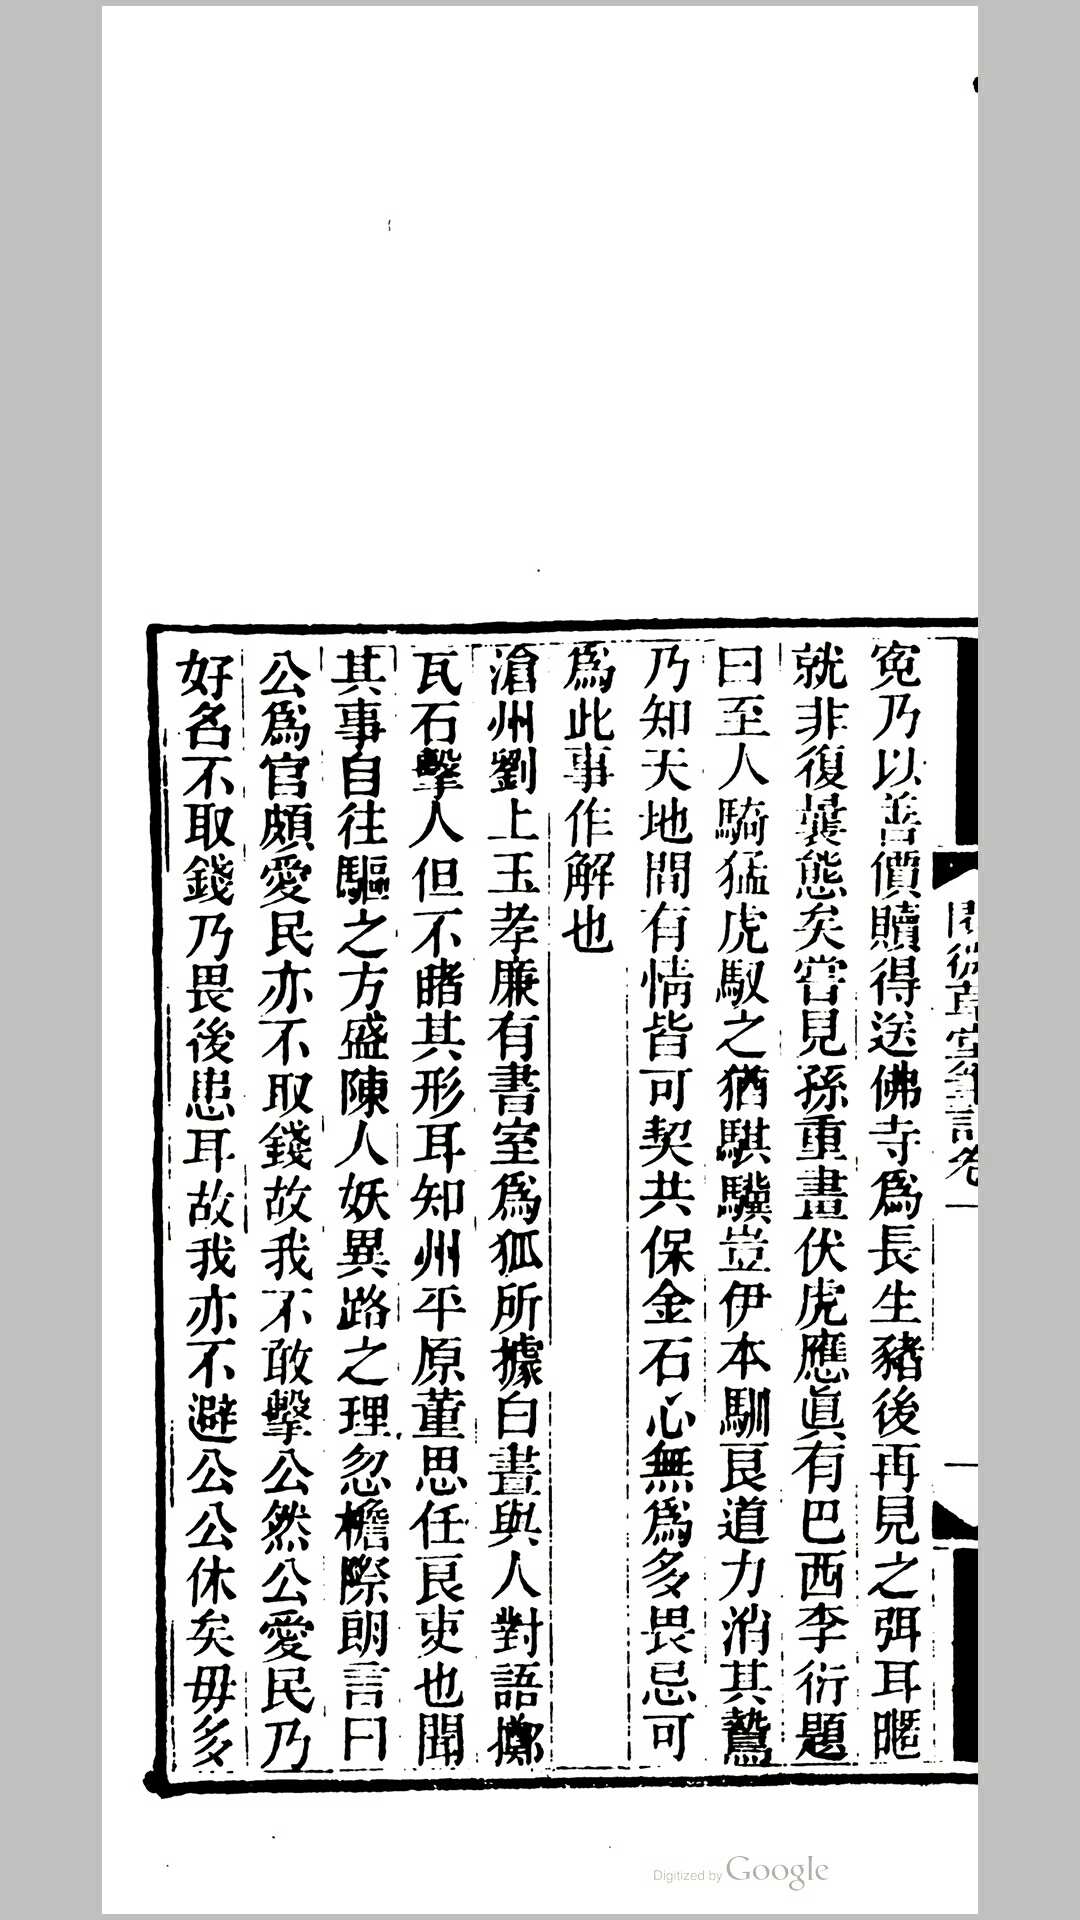 閱微草堂筆記卷一
寃乃以善價贖得送佛寺爲長生豬後再見之弭耳暱
就非復曩態矣嘗見孫重畫伏虎應眞有巴西李衍題
曰至人騎猛虎馭之猶騏驥豈伊本馴良道力消其鷙
乃知天地間有情皆可契共保金石心無爲多畏忌可
爲此事作解也
滄州劉士玉孝廉有書室爲狐所據白晝與人對語擲
瓦石擊人但不睹其形耳知州平原董思任良吏也聞
其事自往驅之方盛陳人妖異路之理忽檐際朗言曰
公爲官頗愛民亦不取錢故我不敢擊公然公愛民乃
好名不取錢乃畏後患耳故我亦不避公公休矣毋多
Digitized by Google